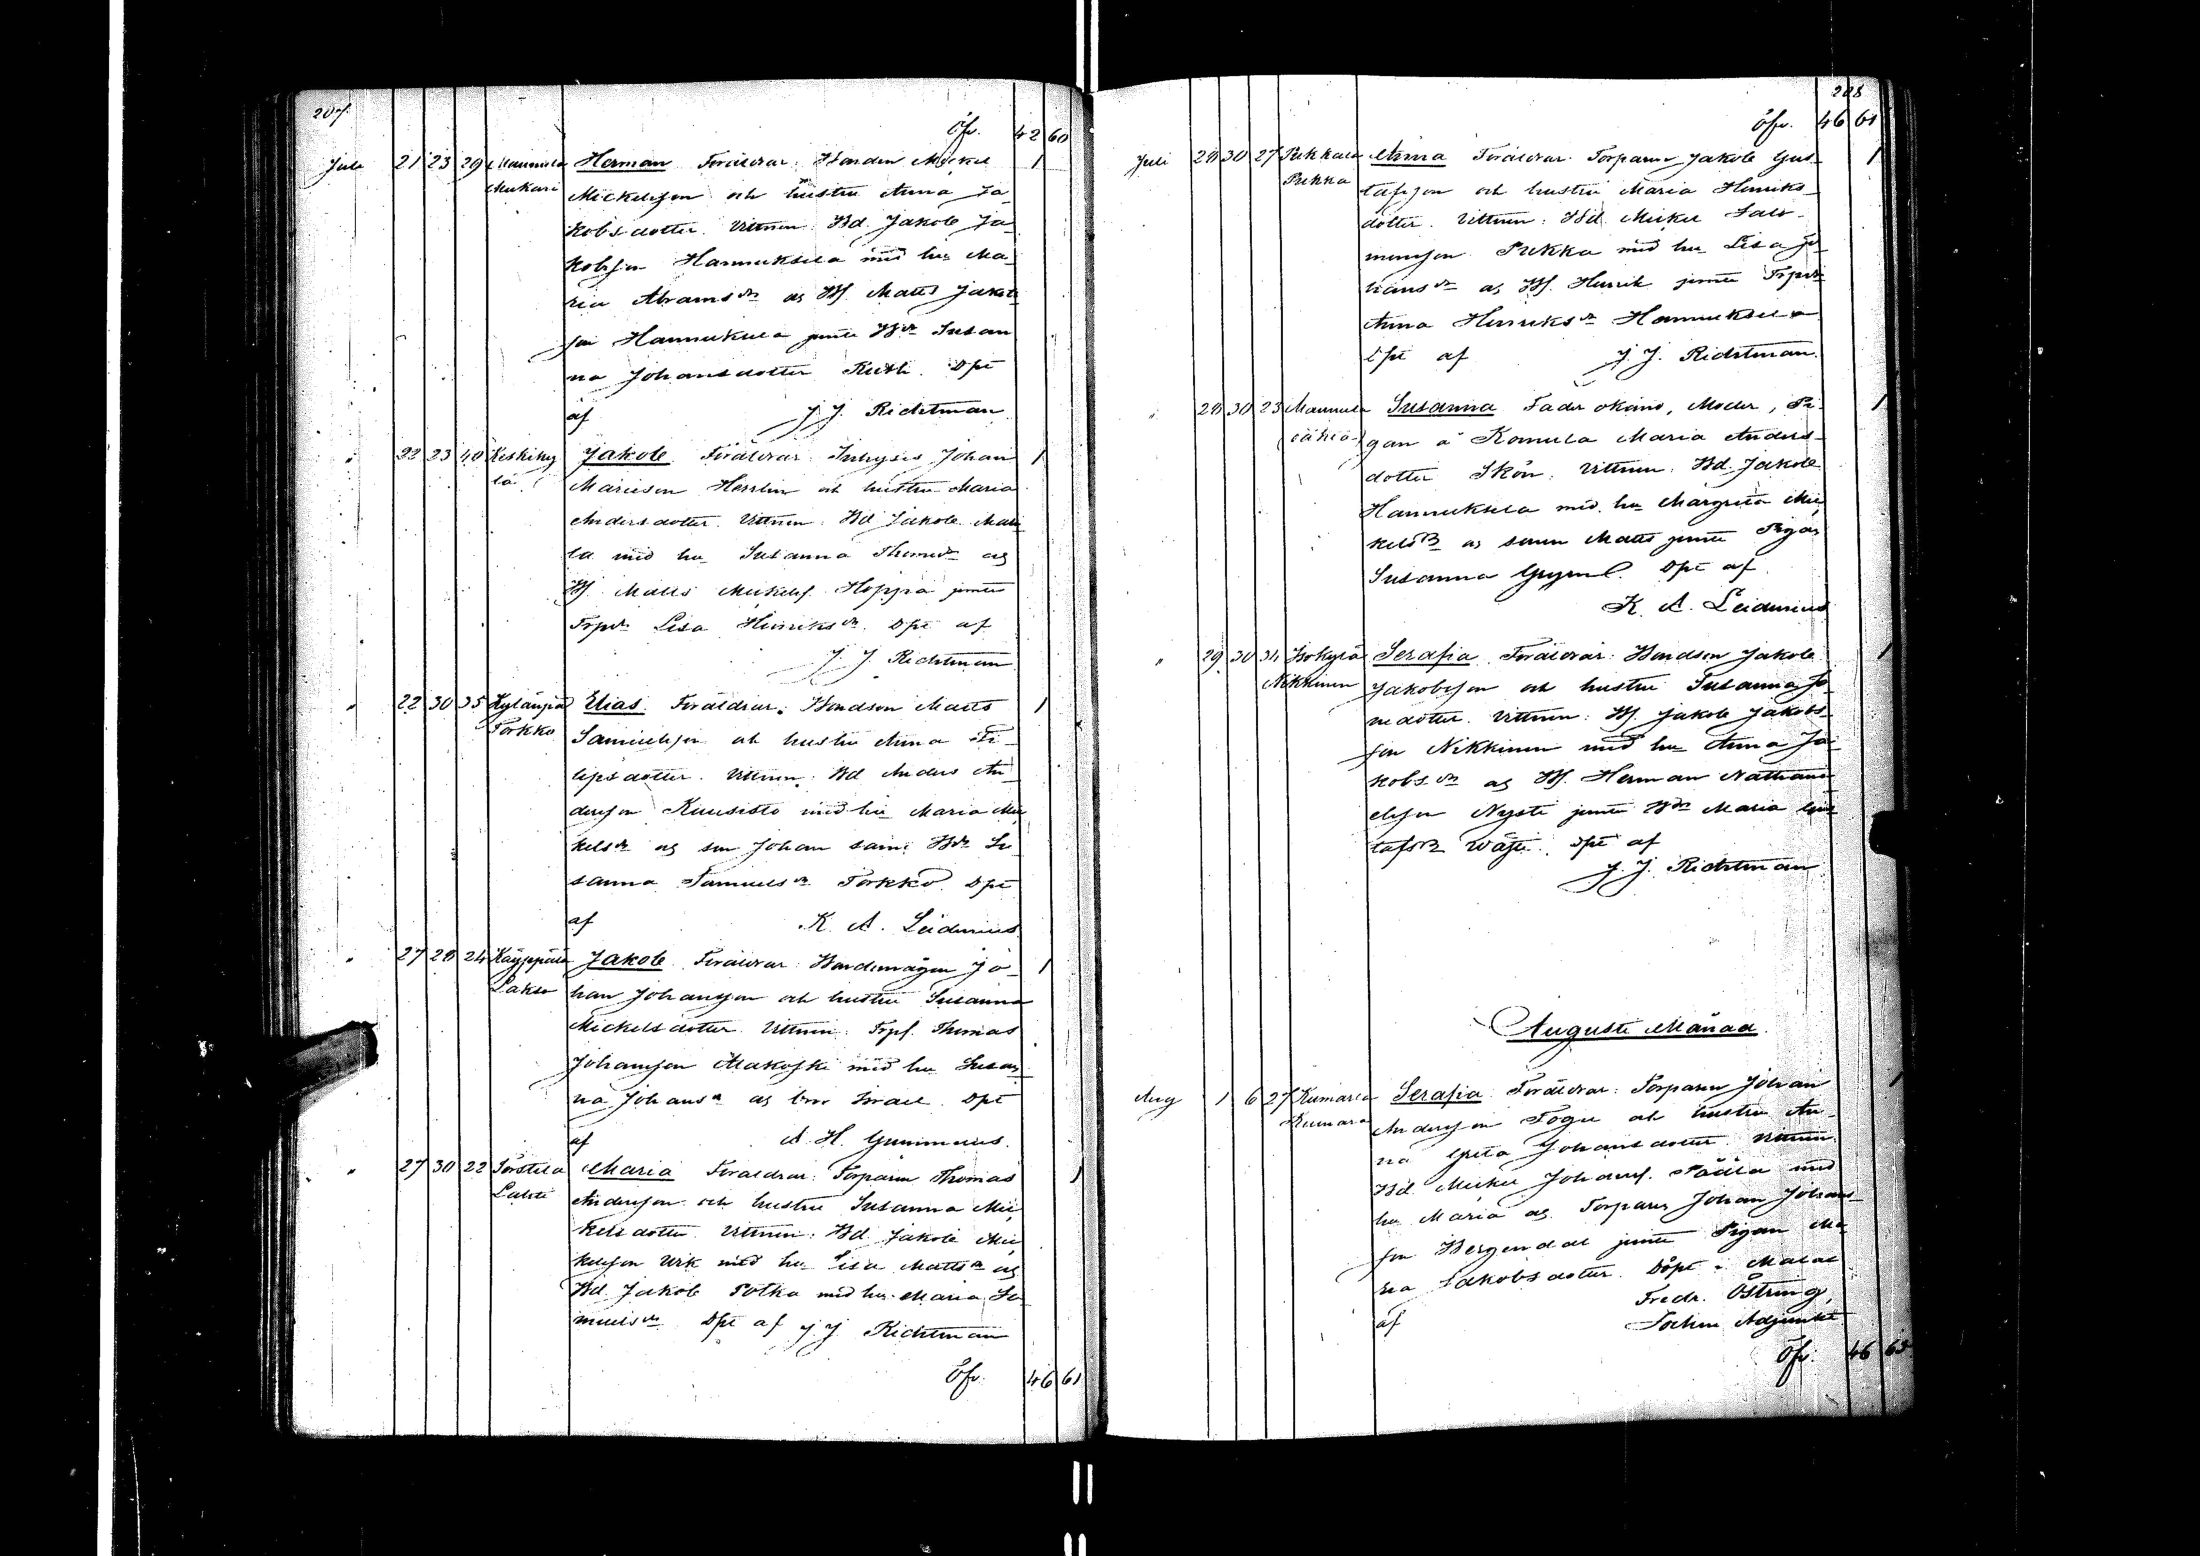 207.
Öfr. 42 60
Juli 21 23 29 Mannula Herman Föräldrar: Bonden Mickel 1
Mukari Mickelsson och hustru Anna Ja
kobsdotter. Vittnen: Bd. Jakob Ja
kobsson Hannuksela med hu Ma
ria Abramsdr og Bs. Matts Jakob
son Hannuksela jemte Bdr Susan
na Johansdotter Rutti. Dpt
af J. J. Richtman
" 22 23 40 Keskiky Jakob Föräldrar: Inhyses Johan 1
lä Mariesen och hustru Maria
Andersdotter. Vittnen: Bd Jakob
la med hu Susanna Thomasdr og
Bs. Matts Mickels. Hoppa jemte
Trpdr Lisa Henriksdr. Dpt af
J. J. Richtman
" 22 30 35 Kylänpää Elias. Föräldrar: Bondson Matts 1
Torkko Samuelsson och hustru Anna Fi
lipsdotter. Vittnen: Bd Anders An
dersson Kuusisto med hu Maria Mic
kelsdr og son Johan samt Bdr Su
sanna Samuelsdr Torkko. Dpt
af K. A. Leidenius
" 27 28 24 Käyppälä Jakob Föräldrar: Bondemågen Jo 1
Lakso han Johansson och hustru Susanna
Mickelsdotter. Vittnen: Trps. Thomas
Johansson Makoski med hu Susan
na Johansdr og bror Israel. Dpt
af A. H. Gummerus.
" 27 30 22 Torstila Maria Föräldrar: Torparen Thomas 1
Lahti Andersson och hustru Susanna Mic
kelsdotter. Vittnen: Bd. Jakob Mic
kelsson Urk med hu Lisa Mattsdr og
Bd. Jakob Potka med hu Maria Sa
muelsdr. Dpt af J. J. Richtman
Öfr. 46 61
208
Öfr. 46 61
Juli 28 30 27 Pukkala Anna Föräldrar: Torparen Jakob Gus 1
Pukka tafsson och hustru Maria Henriks
dotter. Vittnen: Bd. Mickel Salo
monsson Pukka med hu Lisa Jo
hansdr og Bs. Henrik jemte Trpdr
Anna Henriksdr Hannuksela
Dpt af J. J. Richtman.
" 28 30 23 Mannula Susanna Fader okänd, Moder, Pi 1
gan å Komula Maria Anders
dotter Skön. Vittnen: Bd. Jakob
Hannuksela med hu Margreta Mic
kelsdr og sonen Matts jemte Pigan
Susanna Dpt af
K. A. Leidenius
" 29 30 34 Isokylä Serafia Föräldrar: Bondson Jakob 1
Nikkinen Jakobsson och hustru Susanna Jo
nedotter. Vittnen: Bs. Jakob Jakobs
son Nikkinen med hu Anna Ja
kobsdr og Bs. Herman Nathana
elsson Nysti jemte Bdr Maria Gus
tafsdr Dpt af
J. J. Richtman
Augusti Månad.
Aug 1 6 27 Kumara Serafia Föräldrar: Torparen Johan 1
Kumara Andersson och hustru An
na Greta Johansdotter. Vittnen:
Bd. Mickel Johanss. med
hu Maria og Torparen Johan Johans
son Bergendal jemte Pigan Ma
ria Jakobsdotter. Döpt i Malax
af Fredr. Östring,
Socken Adjunkt
Öfr. 46 65